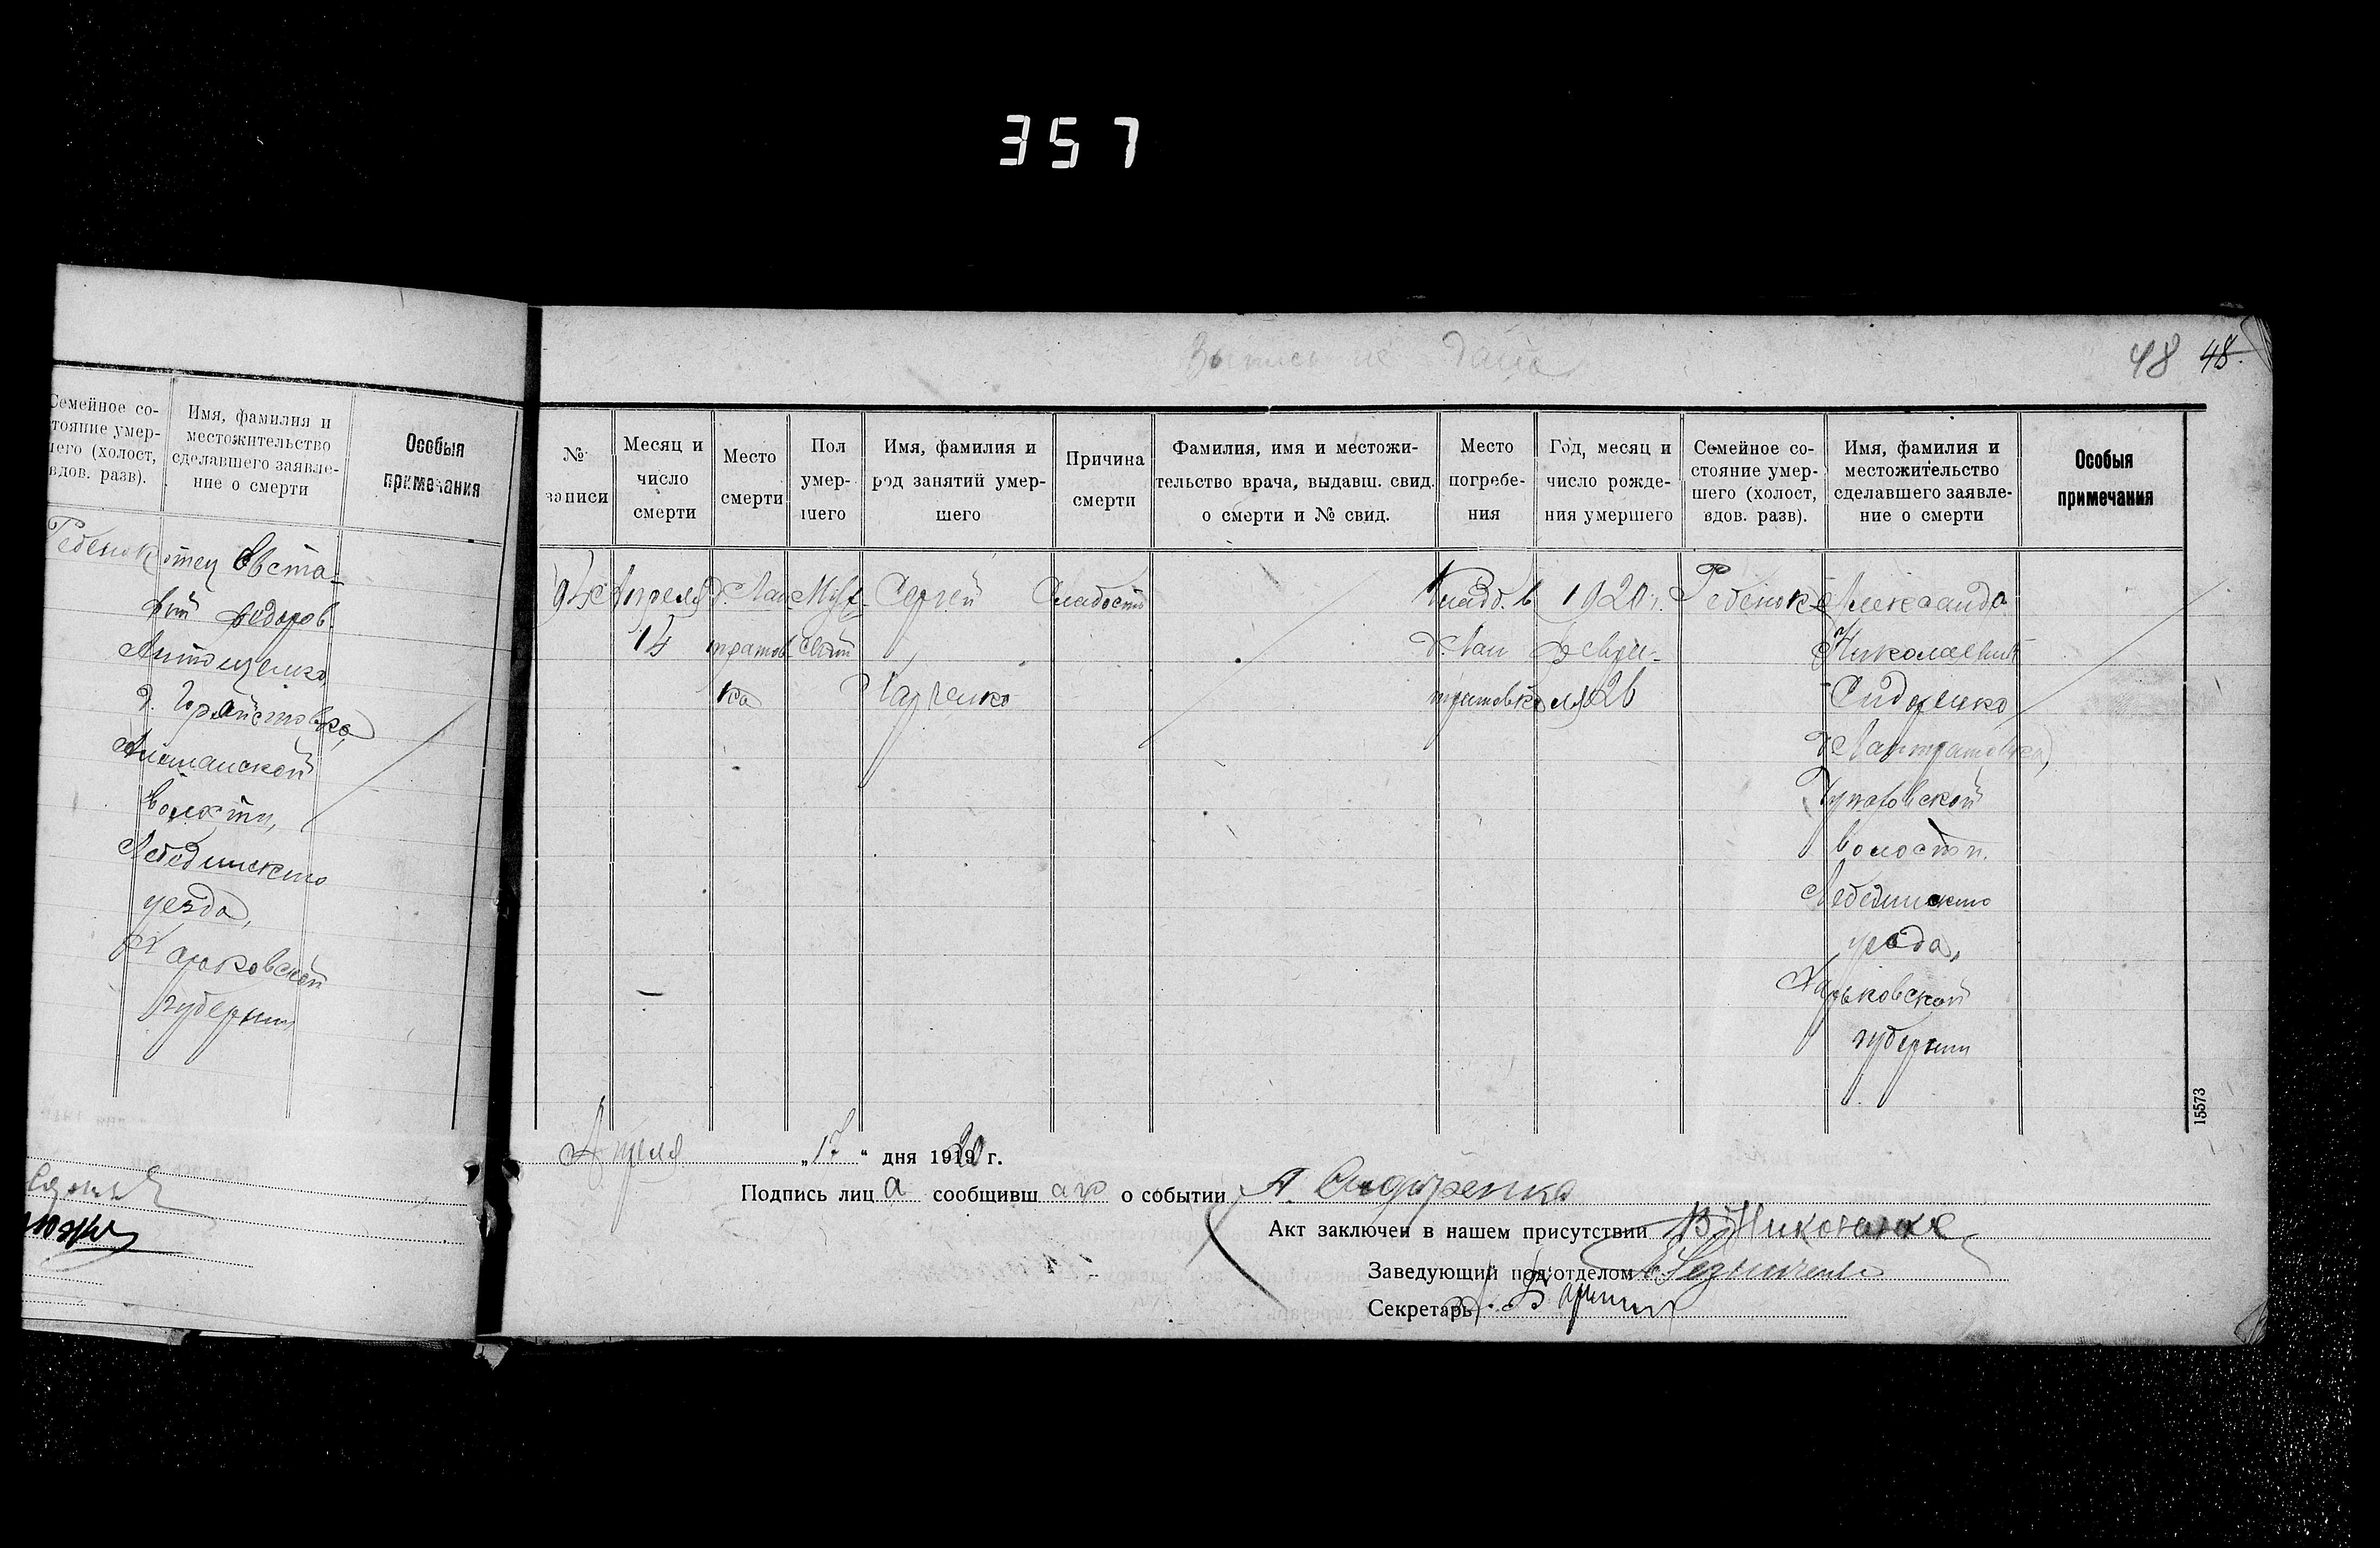 357
Семейное со-
тояние умер-
шего (холост,
вдов. разв).
Имя, фамилия и
местожительство
сделавшего заявле-
ние о смерти
Особыя
примечания
Ребенок
отец Евста-
фий Федоров.
Антощенко
д.
волости,
Лебединского
уезда,
Харковской
губернии
Запись не
48 48.
№
записи
Месяц и
число
смерти
Место
смерти
Пол
умер-
шего
Имя, фамилия и
род занятий умер-
шего
Причина
смерти
Фамилия, имя и местожи-
тельство врача, выдавш. свид.
о смерти и № свид.
Место
погребе-
ния
Год, месяц и
число рожде-
ния умершего
Семейное со-
стояние умер-
шего (холост,
вдов. разв).
Имя, фамилия и
местожительство
сделавшего заявле-
ние о смерти
Особыя
примечания
94
Апреля
14
д. Лан
тратов
ка
Муж-
ской
Сергей
Слабость
Кладб. в
д. Лан
тратовке
1920 г.
Февра-
ля 26
Ребенок
Александр
Николаевич
Сидоренко
д. Лантратовка,
волости.
Лебединского
уезда,
Харьковской
губернии
15573
Апреля „17“ дня 1919 20 г.
Подпись лиц а сообщивш аго о событии А. Сидоренко
Акт заключен в нашем присутствии
Заведующий под'отделом
Секретарь